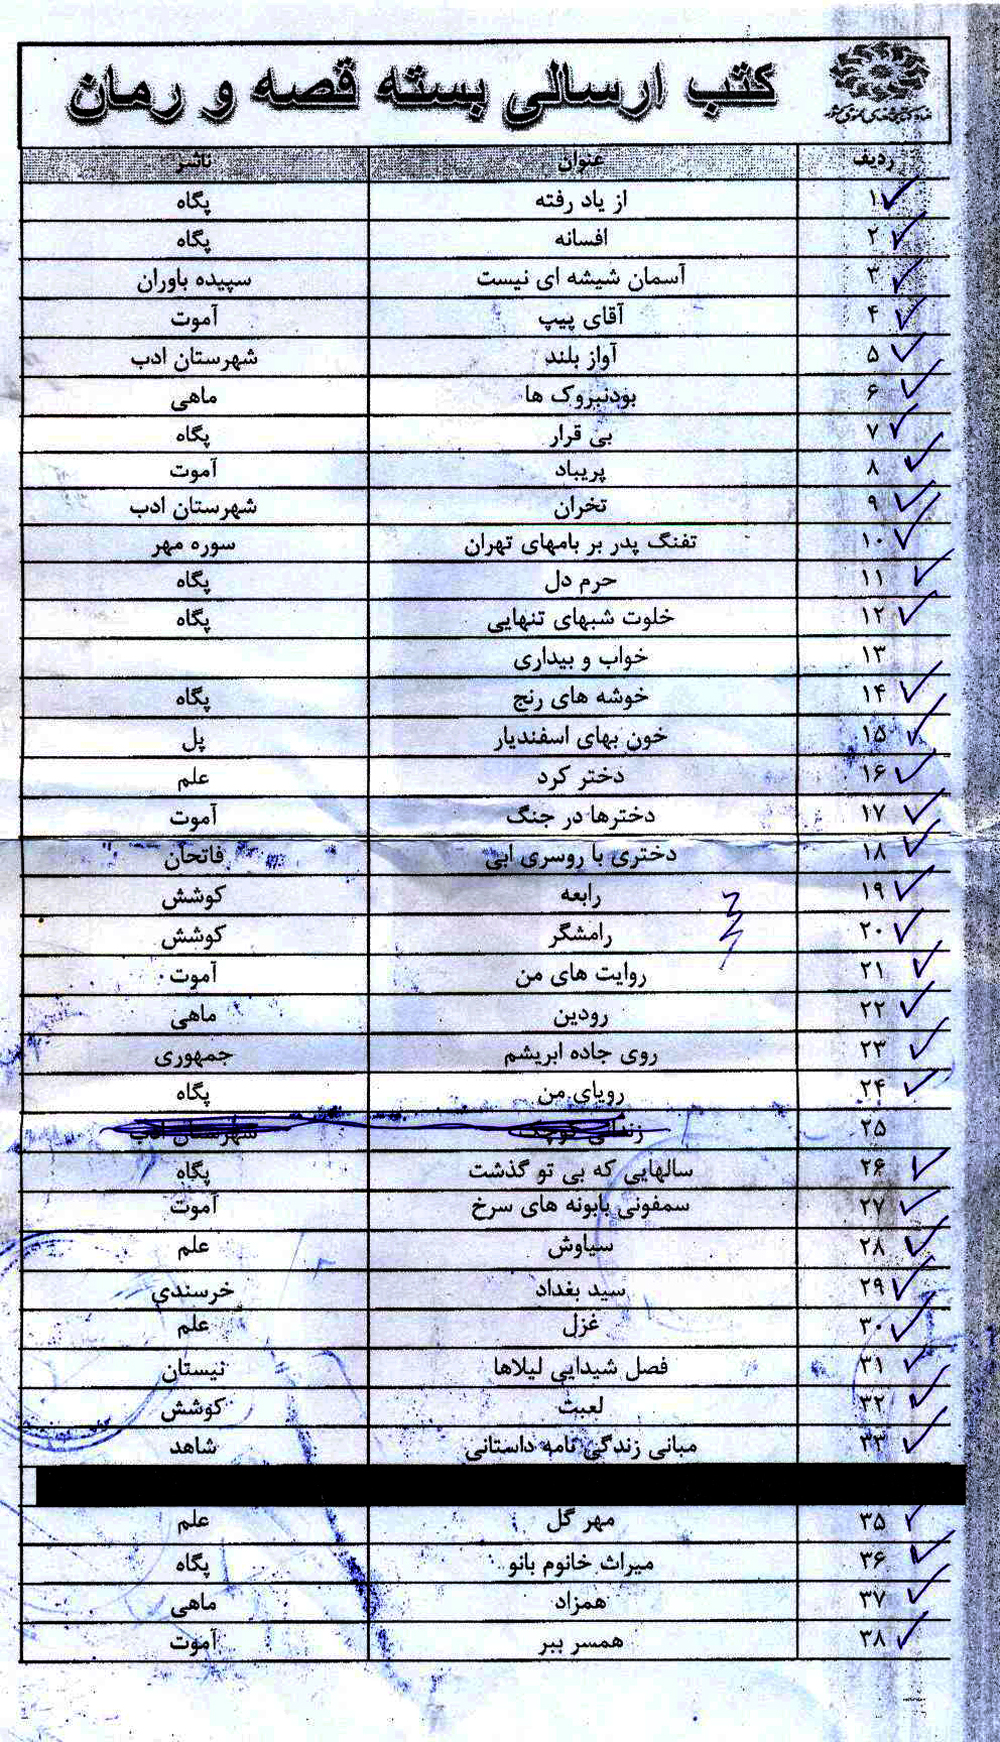 کتب ارسالی بسته قصه و رمان
ردیف عنوان ناشر
۱ از یاد رفته پگاه
۲ افسانه پگاه
۳ آسمان شیشه ای نیست سپیده باوران
۴ آقای پیپ آموت
۵ آواز بلند شهرستان ادب
۶ بودنبروک ها ماهی
۷ بی قرار پگاه
۸ پریباد آموت
۹ تخران شهرستان ادب
۱۰ تفنگ پدر بر بامهای تهران سوره مهر
۱۱ حرم دل پگاه
۱۲ خلوت شبهای تنهایی پگاه
۱۳ خواب و بیداری
۱۴ خوشه های رنج پگاه
۱۵ خون بهای اسفندیار پل
۱۶ دختر کرد علم
۱۷ دخترها در جنگ آموت
۱۸ دختری با روسری ابی فاتحان
۱۹ رابعه کوشش
۲۰ رامشگر کوشش
۲۱ روایت های من آموت
۲۲ رودین ماهی
۲۳ روی جاده ابریشم جمهوری
۲۴ رویای من پگاه
۲۵ زندانی کوچک شهرستان ادب
۲۶ سالهایی که بی تو گذشت پگاه
۲۷ سمفونی بابونه های سرخ آموت
۲۸ سیاوش علم
۲۹ سید بغداد خرسندی
۳۰ غزل علم
۳۱ فصل شیدایی لیلاها نیستان
۳۲ لعبت کوشش
۳۳ مبانی زندگی نامه داستانی شاهد
۳۵ مهر گل علم
۳۶ میراث خانوم بانو پگاه
۳۷ همزاد ماهی
۳۸ همسر ببر آموت